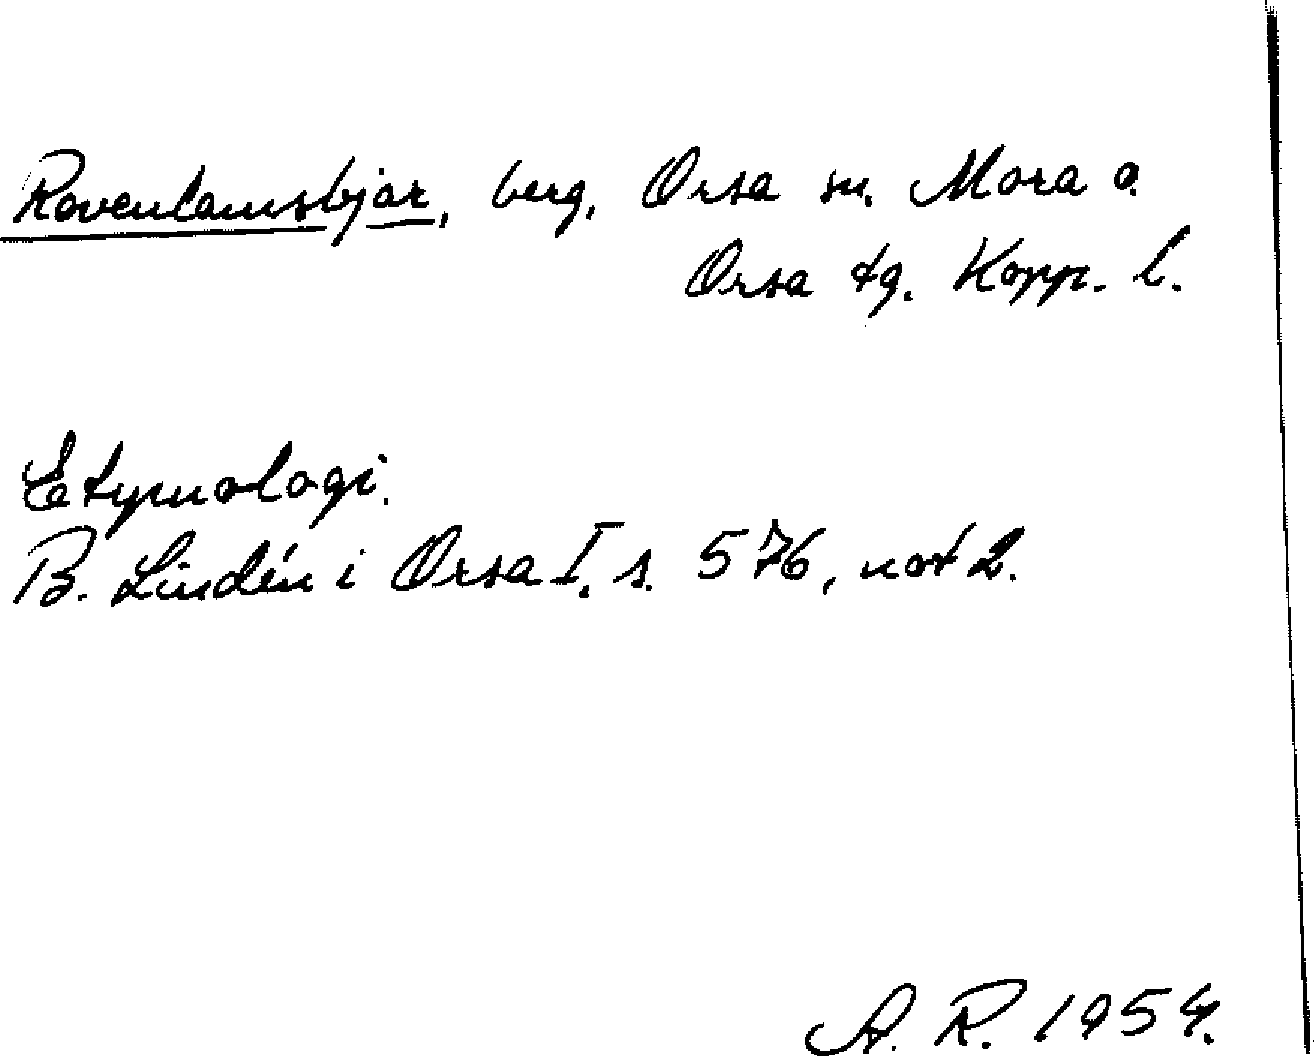 Rovenlamsbjär, berg, Orsa sn. Mora o.
Orsa tg. Kopp. l.
Etymologi.
B. Lindén i Orsa I, s. 576, not 2.
A. R. 1954.